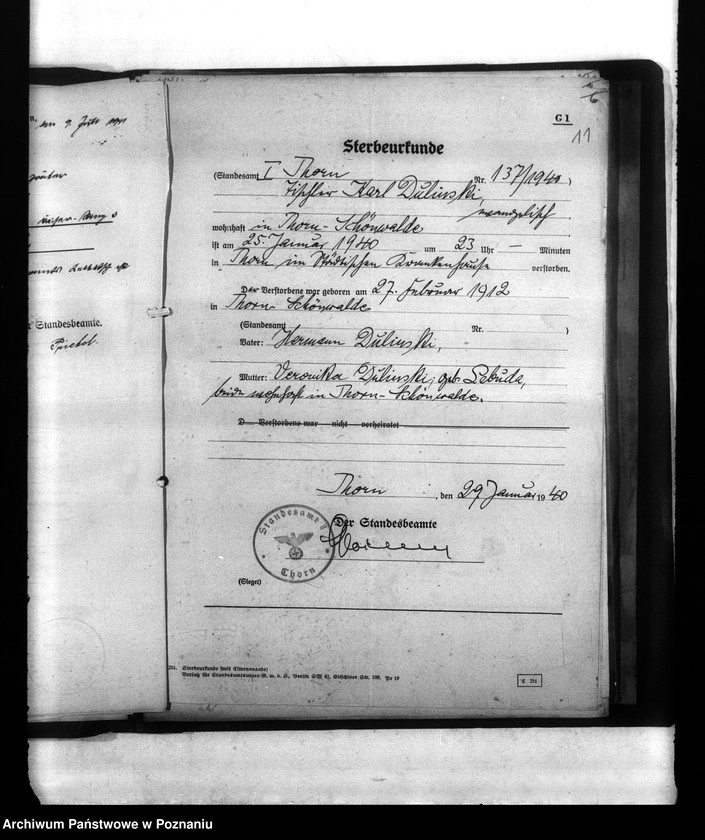 den 9. Juli 1941
Standesbeamte.
G 1
11
Sterbeurkunde
(Standesamt I Thorn Nr. 137/1940)
Tischler Karl Dulinski,
evangelisch
wohnhaft in Thorn-Schönwalde
ist am 25. Januar 1940 um 23 Uhr — Minuten
in Thorn im Städtischen Krankenhause verstorben.
Der Verstorbene war geboren am 27. Februar 1912
in Thorn-Schönwalde
(Standesamt Nr. )
Vater: Hermann Dulinski,
Mutter: Veronika Dulinski, geb. Lebuda,
beide wohnhaft in Thorn-Schönwalde.
D Verstorbene war nicht verheiratet
Thorn, den 29 Januar 1940
Der Standesbeamte
Standesamt
Thorn
(Siegel)
Sterbeurkunde (mit Elternangabe)
Verlag für Standesamtswesen G. m. b. H., Berlin SW 61, Gitschiner Str. 109.
Archiwum Państwowe w Poznaniu